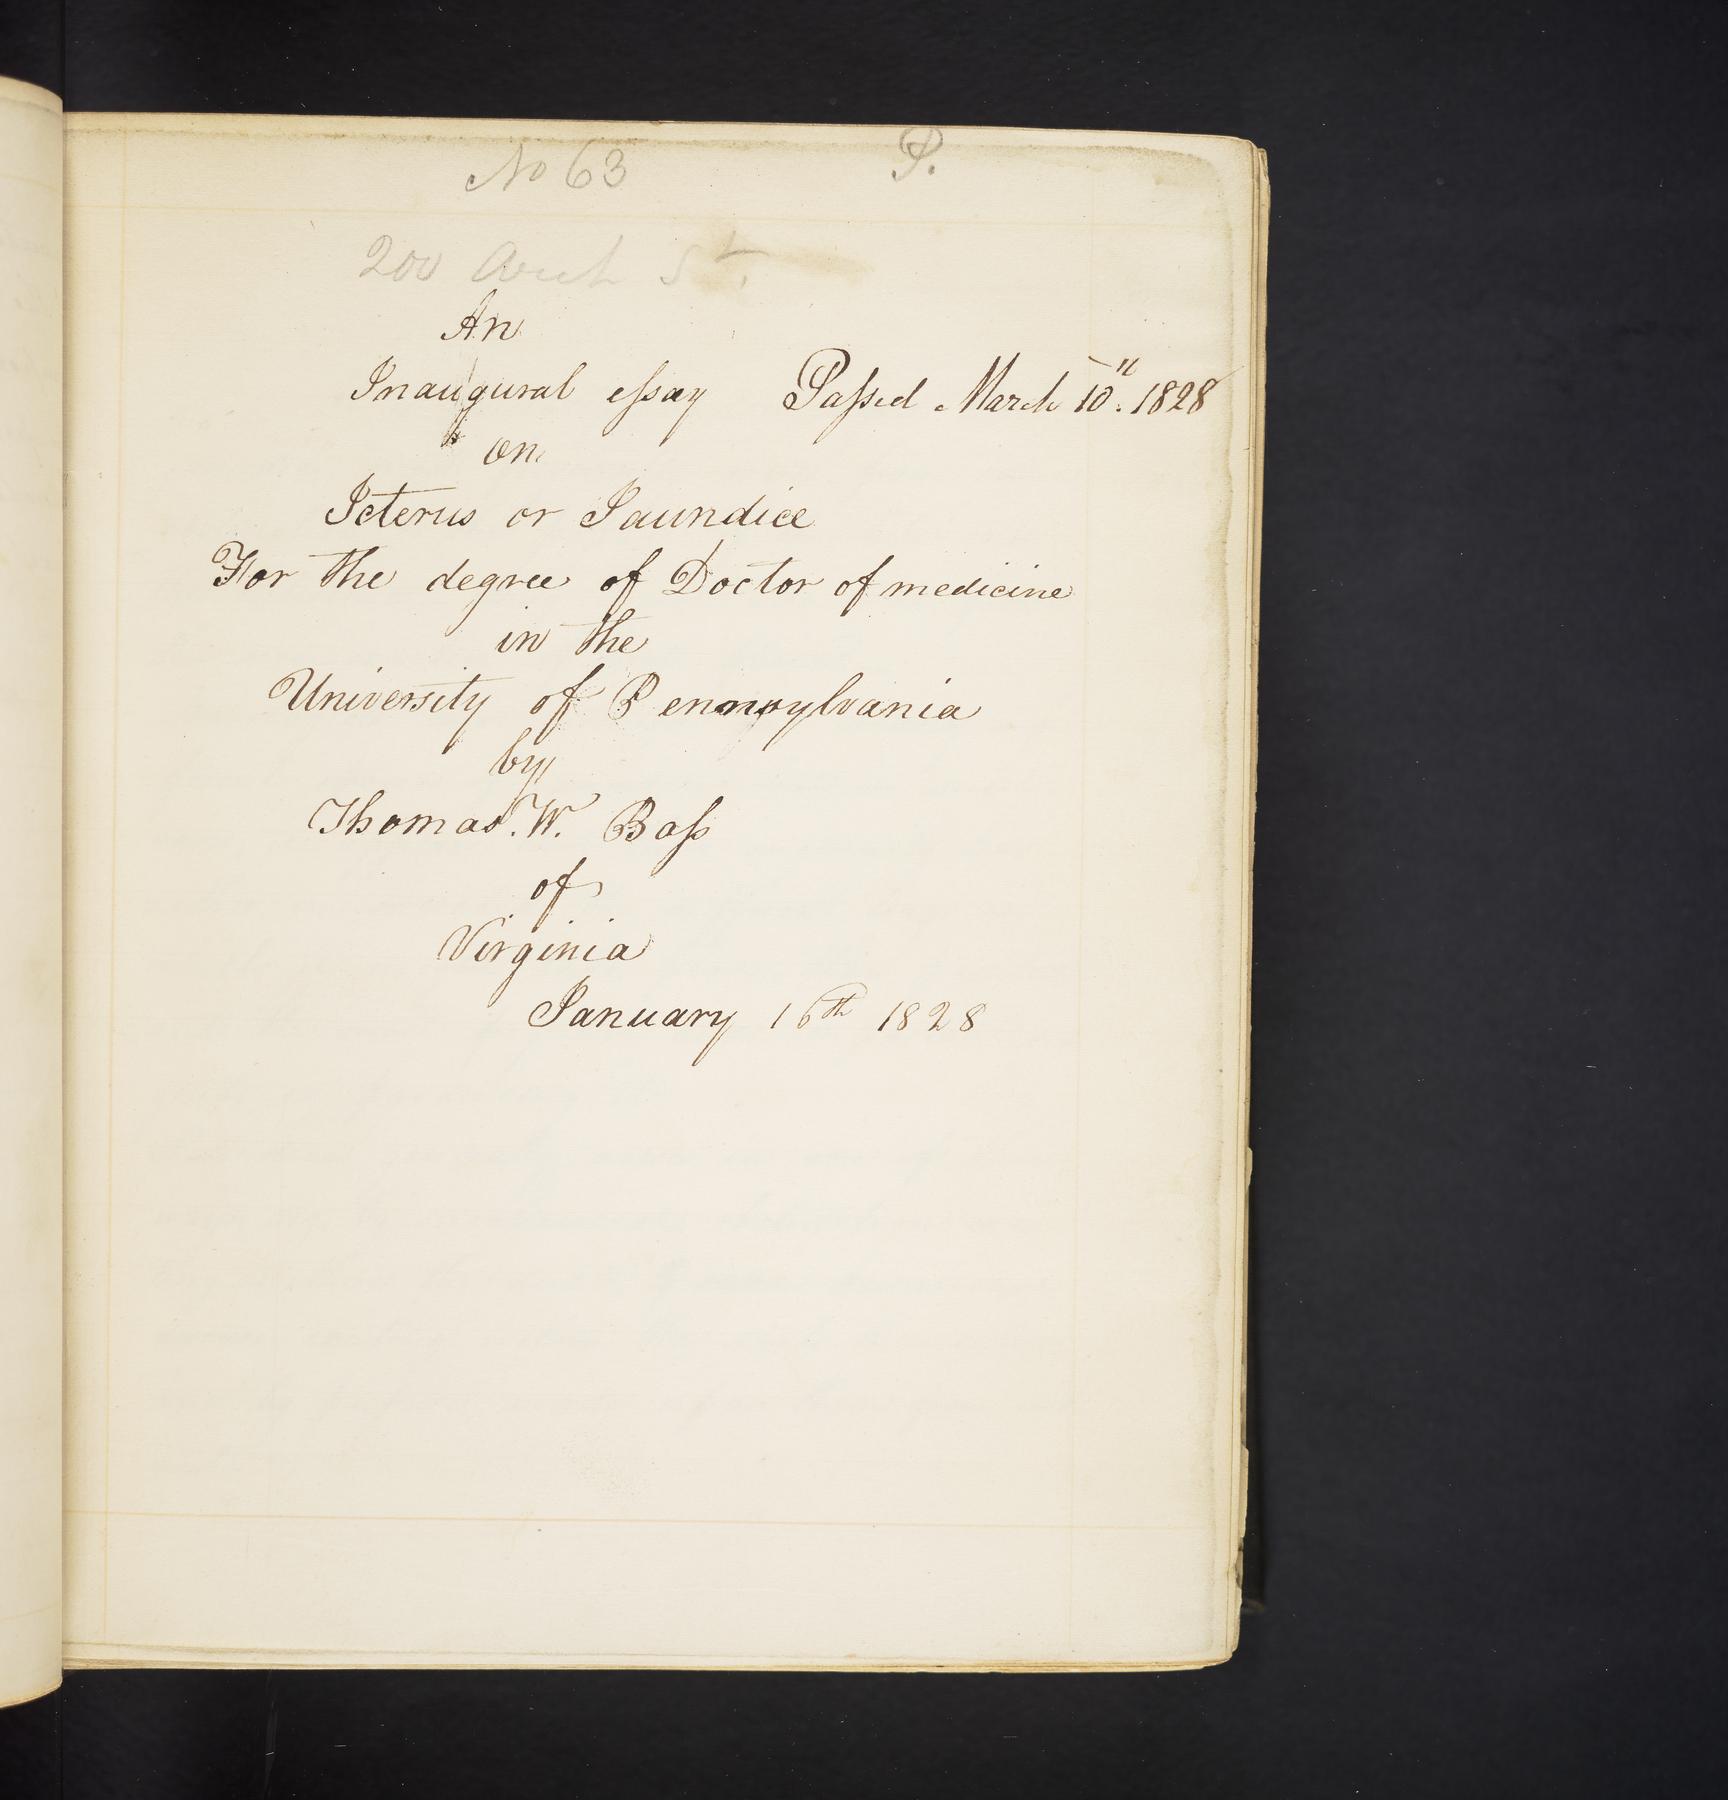 No 63 P.
200 Arch St.
An
Inaugural eſsay Paſsed March 10th. 1828
on
Icterus or Jaundice
For the degree of Doctor of medicine
in the
University of Pennsylvania
by
Thomas. W. Baſs
of
Virginia
January 16th 1828